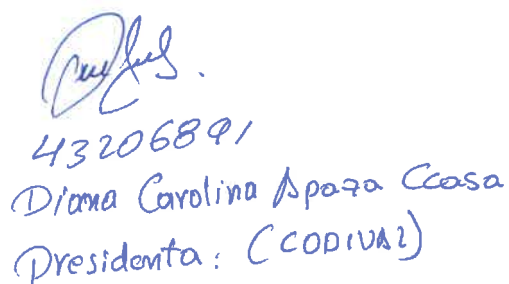 43206891
Diana Carolina Apaza Ccasa
Presidenta: (CODIVAI)